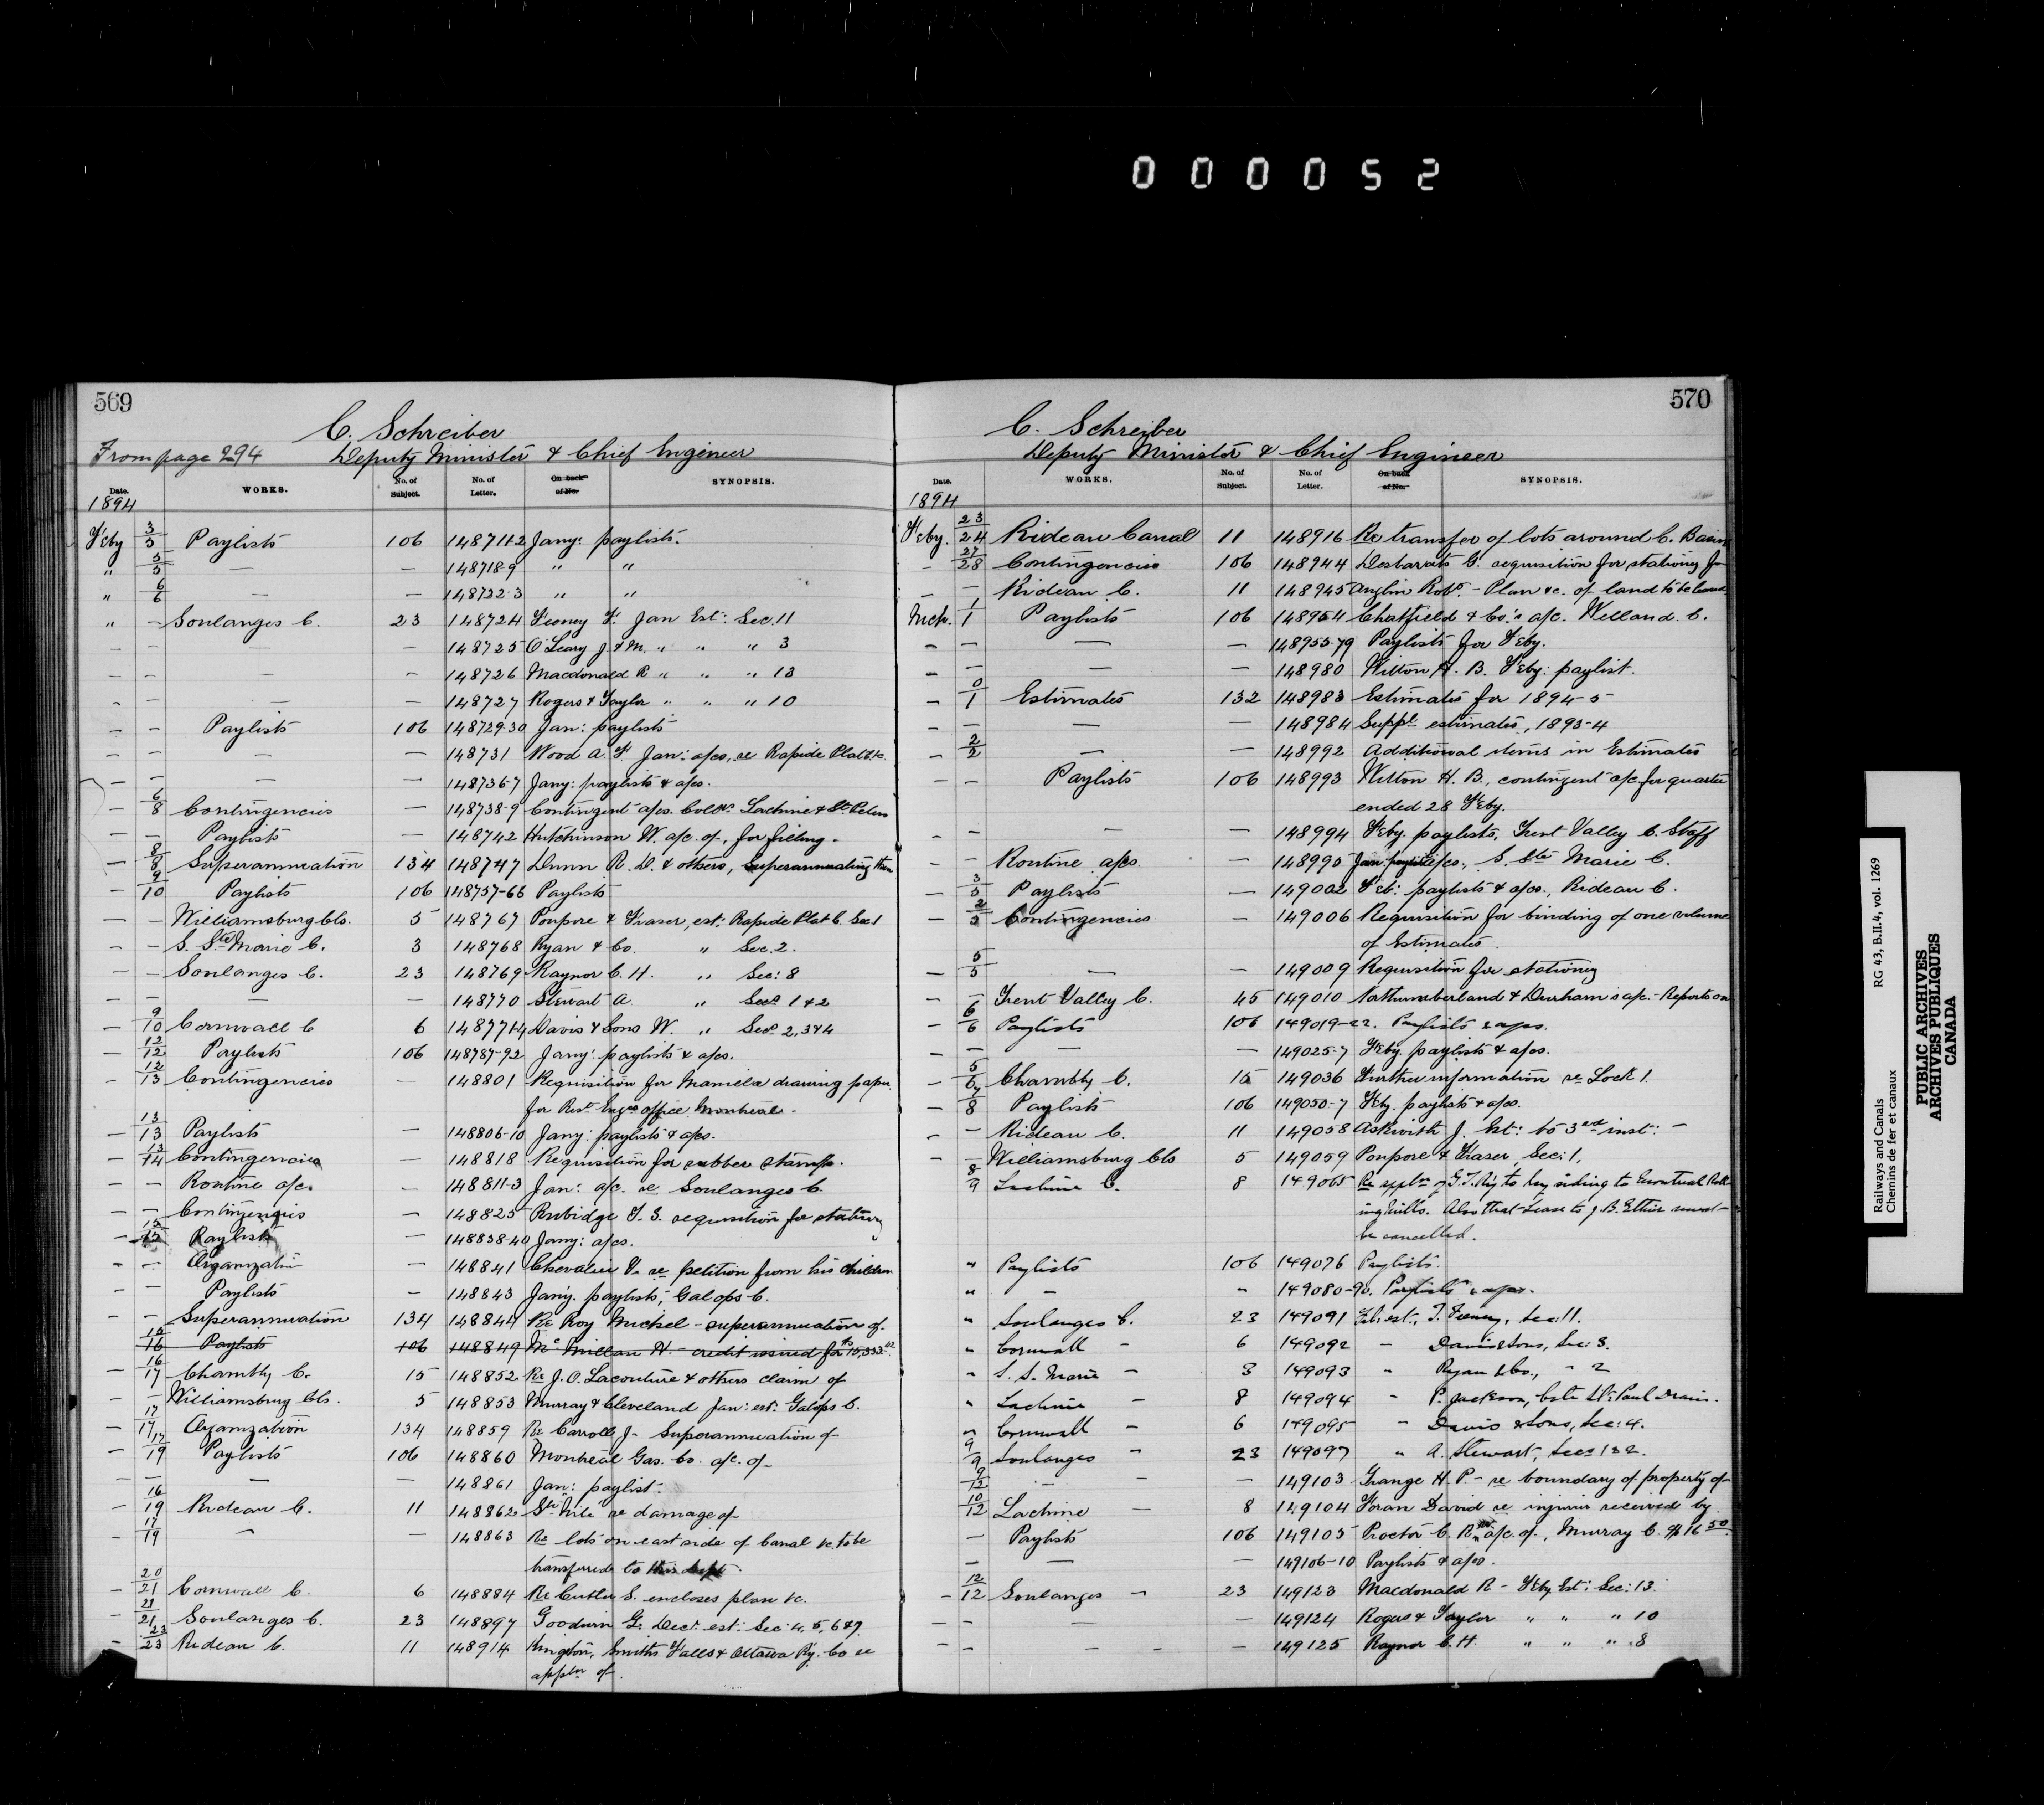 000052
569
C. Schreiber
From page 294 Deputy Minister & Chief Engineer
Date. WORKS. No. of Subject. No. of Letter. On back of No. SYNOPSIS.
1894
Feby 3/5 Paylists 106 148711-2 Jany: paylists.
" 5/5 — — 148718-9 " "
" 6/6 — — 148722-3 " "
" — Soulanges C. 23 148724 Feeney F. Jan Est: Sec. 11
— — — — 148725 O'Leary J. & M. " " " 3
— — — — 148726 Macdonald R " " " 13
— — — — 148727 Rogers & Taylor " " " 10
— — Paylists 106 148729-30 Jan: paylists
— — — — 148731 Wood A. F. Jan: a/cs, re Rapide Plat &c.
— — — — 148736-7 Jany: paylists & a/cs.
— 6/8 Contingencies — 148738-9 Contingent a/cs. Coll.rs Lachine & St. Peters
— — Paylists — 148742 Hutchinson W. a/c. of, for filling.
— 8/8 Superannuation 134 148747 Dunn R. D. & others, Superannuating them
— 9/10 Paylists 106 148757-66 Paylists
— — Williamsburg Cls. 5 148767 Poupore & Fraser, est: Rapide Plat C. Sec 1
— — S. Ste Marie C. 3 148768 Ryan & Co. " Sec. 2.
— — Soulanges C. 23 148769 Raynor C. H. " Sec: 8
— — — — 148770 Stewart A. " Secs 1 & 2
— 9/10 Cornwall C 6 148771-4 Davis & Sons W. " Secs 2, 3 & 4
— 12/12 Paylists 106 148787-92 Jany: paylists & a/cs.
— 12/13 Contingencies — 148801 Requisition for Manilla drawing paper
for Rest. Engrs office Montreal.
— 13/13 Paylists — 148806-10 Jany: paylists & a/cs.
— 13/14 Contingencies — 148818 Requisition for rubber stamps.
— — Routine a/cs. — 148811-3 Jan: a/c. re Soulanges C.
— — Contingencies — 148825 Rubidge T. S. requisition for stationery
— Paylists — 148838-40 Jany: a/cs.
— — Organization — 148841 Chevalier V. re petition from his children
— — Paylists — 148843 Jany. paylists, Galops C.
— — Superannuation 134 148844 Re Roy Michel - superannuation of.
15/16 Paylists 106 148849 McMillan H. - credit issued for
— 16/17 Chambly C. 15 148852 Re J. O. Lacouture & others claim of
— — Williamsburg Cls. 5 148853 Murray & Cleveland Jan: est: Galops C.
— 17/17 Organization 134 148859 Re Carroll J - Superannuation of
— 17/19 Paylists 106 148860 Montreal Gas. Co. a/c. of
— — — — 148861 Jan: paylist.
— 16/19 Rideau C. 11 148862 re damage of
— 17/19 — — 148863 Re lots on east side of Canal &c. to be
transferred to this dept.
— 20/21 Cornwall C. 6 148884 Re Cutler S. encloses plan &c.
— 21/21 Soulanges C. 23 148897 Goodwin G. Dec: est: Sec: 4, 5, 6 & 7.
— 23/23 Rideau C. 11 148914 Kingston, Smiths Falls & Ottawa Ry. Co re
appln of.
570
C. Schreiber
Deputy Minister & Chief Engineer
Date. WORKS. No. of Subject. No. of Letter. On back of No. SYNOPSIS.
1894
Feby. 23/24 Rideau Canal 11 148916 Re transfer of lots around C. Basin
— 27/28 Contingencies 106 148944 Desbarats G. requisition for stationery for
— — Rideau C. 11 148945 Anglin Robt. - Plan &c. of land to be
Mch. 1/1 Paylists 106 148954 Chatfield & Co's a/c. Welland C.
— — — — 148955-79 Paylists for Feby.
— — — — 148980 Wilton H. B. Feby: paylist.
— 0/1 Estimates 132 148983 Estimates for 1894-5
— — — — 148984 Suppl. estimates, 1893-4
— 2/2 — — 148992 Additional items in Estimates
— — Paylists 106 148993 Wilton H. B., contingent a/c for quarter
ended 28 Feby.
— — — — 148994 Feby. paylists, Trent Valley C. Staff
— — Routine a/cs. — 148995 a/cs., S. Ste Marie C.
— 3/5 Paylists — 149002 Feb: paylists & a/cs., Rideau C.
— 2/5 Contingencies — 149006 Requisition for binding of one volume
of Estimates.
— 5/5 — — 149009 Requisition for stationery
— — Trent Valley C. 45 149010 Northumberland & Durham's a/c. - Reports on
— 6/6 Paylists 106 149019-22. Paylists & a/cs.
— — — — 149025-7 Feby. paylists & a/cs.
— 5/6 Chambly C. 15 149036 Further information re Lock 1.
— 7/8 Paylists 106 149050-7 Feby. paylists & a/cs.
— — Rideau C. 11 149058 Askwith J. Est: to 3rd inst: —
— — Williamsburg Cls 5 149059 Poupore & Fraser, Sec: 1,
8/9 Lachine C. 8 149065 Re appln of G. T. Ry. to lay siding to Montreal Roll-
ing Mills. Also that Lease to J. B. Ethier
be cancelled.
" Paylists 106 149076 Paylists.
" — " 149080-90. Paylists & a/cs.
" Soulanges C. 23 149091 Feb. est., T. Feeney, Sec: 11.
" Cornwall — 6 149092 — Davis & Sons, Sec: 3.
" S. S. Marie — 3 149093 " Ryan & Co., " 2
" Lachine — 8 149094 " P. Jackson, St. Paul Drain.
" Cornwall — 6 149095 " Davis & Sons, Sec: 4.
9/9 Soulanges " 23 149097 " A. Stewart, Secs 1 & 2.
9/12 — — — 149103 Grange H. P. - re boundary of property of
10/12 Lachine — 8 149104 Foran David re injuries received by
— Paylists 106 149105 Proctor C. R. a/c. of, Murray C. $16.50.
— — — 149106-10 Paylists & a/cs.
— 12/12 Soulanges — 23 149123 Macdonald R - Feby Est: Sec: 13.
— — — — 149124 Rogers & Taylor " " " 10
— — — — 149125 Raynor C. H. " " " 8
Railways and Canals RG 43, B.II.4, vol. 1269
Chemins de fer et canaux
PUBLIC ARCHIVES
ARCHIVES PUBLIQUES
CANADA